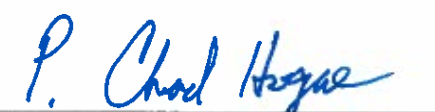 P. Chad Hogue